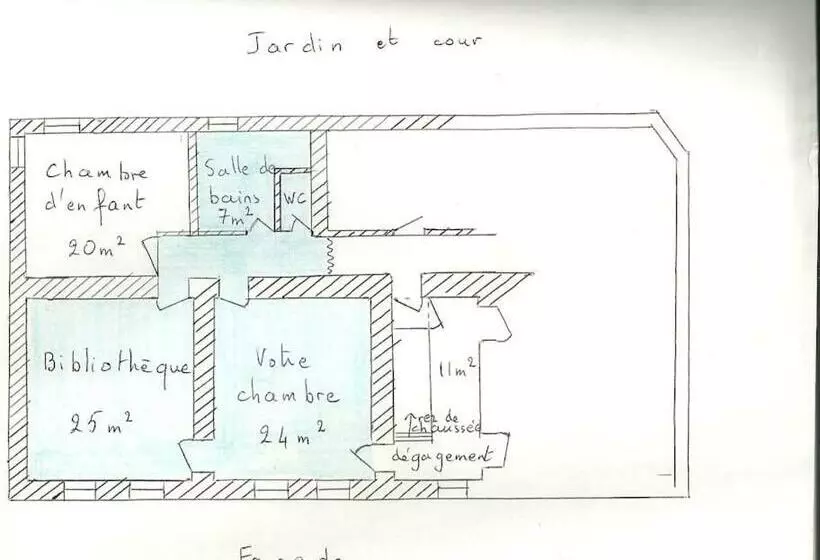 Jardin et cour
Chambre
d'enfant
20m²
Salle de
bains
7m²
WC
Bibliothèque
25 m²
Votre
chambre
24 m²
11m²
rez de
chaussée
dégagement